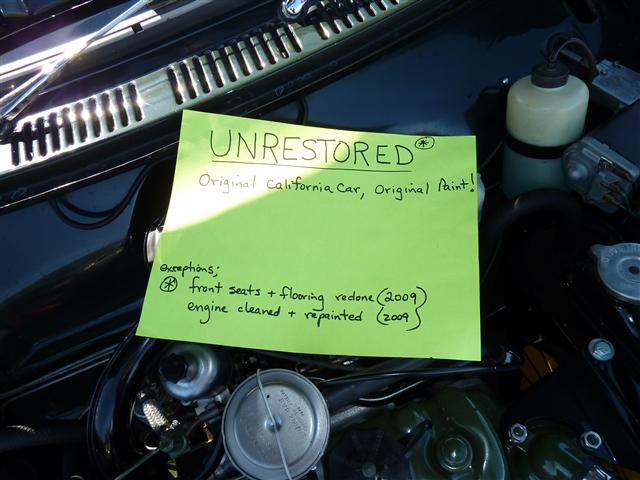 UNRESTORED *
Original California Car, Original Paint!
exceptions;
* front seats + flooring redone (2009)
engine cleaned + repainted (2009)